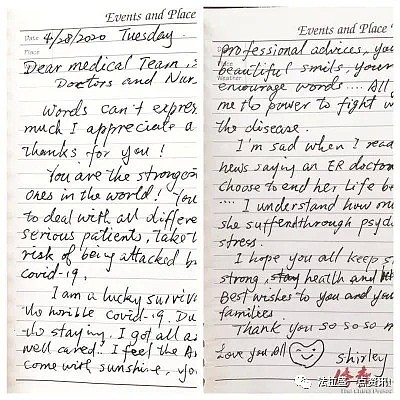 Events and Place
Date 4/28/2020 Tuesday
Place
Dear medical Team,
Doctors and Nur
Words can't expres
much I appreciate a
thanks for you!
You are the strongest
ones in the world! You
to deal with all differe
serious patients, take t
risk of being attacked b
covid-19.
I am a lucky surviv
the horrible covid-19. Du
the staying, I got all a
well cared.. I feel the A
come with sunshine, yo
Events and Place
professional advices, you
Place
beautiful smils, your
Weather
encourage words.... All
me the power to fight w
the disease.
I'm sad when I read
news saying an ER doctor
choose to end her life be
.... I understand how
she suffen through psyc
stress.
I hope you all keep s
strong, stay health and
Best wishes to you and you
families
Thank you so so so m
Love you All
Shirley
法拉盛一点资讯
The China Press